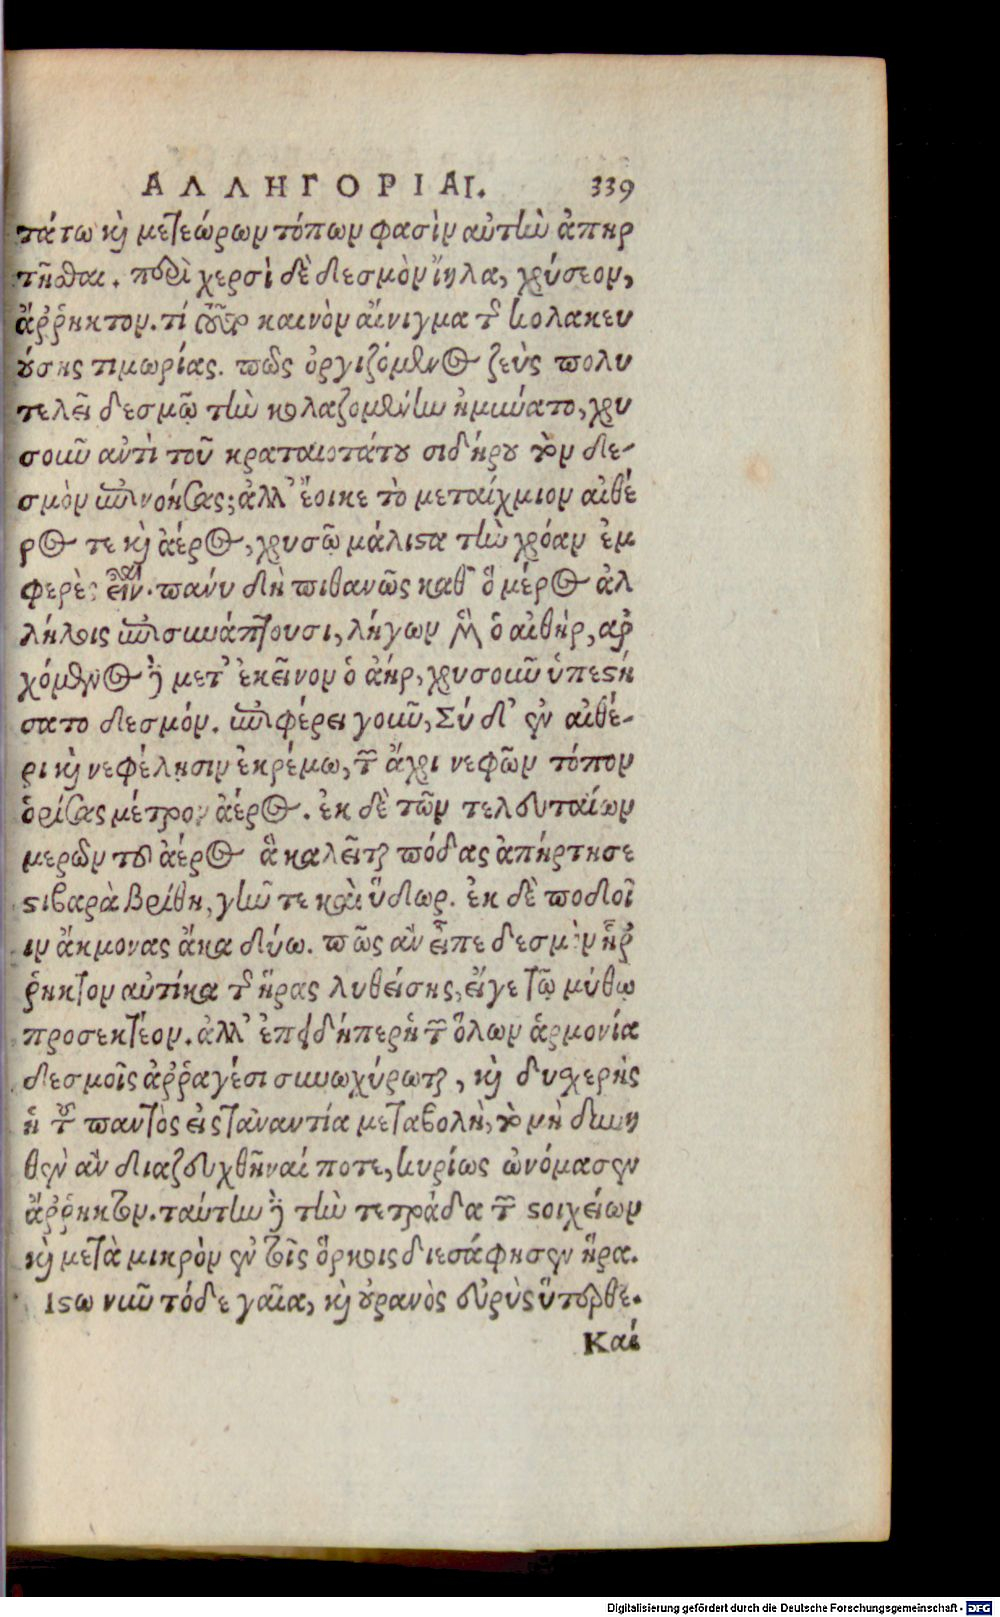 ΑΛΛΗΓΟΡΙΑΙ. 339
τάτω καὶ μετεώρων τόπων φασὶν αὐτὴν ἀπηρ
τῆσθαι. περὶ χερσὶ δὲ δεσμὸν ἴηλα, χρύσεον,
ἄῤῥηκτον. τί οὖν καινὸν αἴνιγμα τῆς κολακευ
ούσης τιμωρίας. πῶς ὀργιζόμενος ζεὺς πολυ
τελεῖ δεσμῷ τὴν κολαζομένην ἠμύνατο, χρυ
σοῦν ἀντὶ τοῦ κραταιοτάτου σιδήρου τὸν δε-
σμὸν ἐπινοήσας; ἀλλ' ἔοικε τὸ μεταίχμιον αἰθέ
ρος τε καὶ ἀέρος, χρυσῷ μάλιστα τὴν χρόαν ἐμ
φερὲς εἶναι. πάνυ δὴ πιθανῶς καθ' ὃ μέρος ἀλ
λήλοις ἐπισυνάπτουσι, λήγων μὲν ὁ αἰθήρ, ἀρ
χόμενος δὲ μετ' ἐκεῖνον ὁ ἀήρ, χρυσοῦν ὑπεστή
σατο δεσμόν. ἐπιφέρει γοῦν, Σύ δ' ἐν αἰθέ-
ρι καὶ νεφέλῃσιν ἐκρέμω, τὸν ἄχρι νεφῶν τόπον
ὁρίσας μέτρον ἀέρος. ἐκ δὲ τῶν τελευταίων
μερῶν τοῦ ἀέρος ἃ καλεῖται πόδας ἀπήρτησε
στιβαρὰ βρίθη, γῆν τε καὶ ὕδωρ. ἐκ δὲ ποδοῖ
ιν ἄκμονας ἄκα δύω. πῶς ἂν εἶπε δεσμὸν ἄῤ
ῥηκτον αὐτίκα τῆς ἥρας λυθείσης, εἴγε τῷ μύθῳ
προσεκτέον. ἀλλ' ἐπειδήπερ ἡ τῶν ὅλων ἁρμονία
δεσμοῖς ἀῤῥαγέσι συνωχύρωται, καὶ δυσχερὴς
ἡ τοῦ παντὸς εἰς τἀναντία μεταβολὴ, τὸ μὴ δυνη
θὲν ἂν διαζευχθῆναί ποτε, κυρίως ὠνόμασεν
ἄῤῥηκτον. ταύτην δὲ τὴν τετράδα τῶν στοιχείων
καὶ μετὰ μικρὸν ἐν τοῖς ὅρκοις διεσάφησεν ἥρα.
Ιστω νῦν τόδε γαῖα, καὶ οὐρανὸς εὐρὺς ὕπερθε.
Καὶ
Digitalisierung gefördert durch die Deutsche Forschungsgemeinschaft - DFG